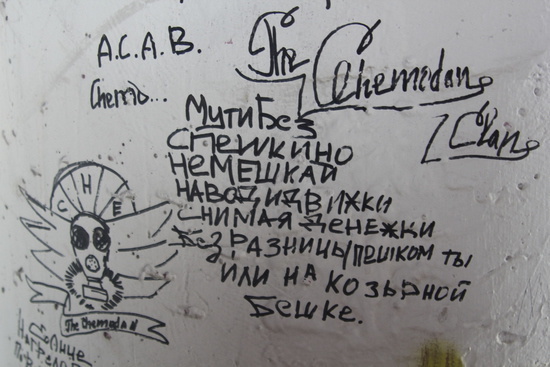 A.C.A.B.
The Chemodan
Clan
Chemo...
Мути Без
спешки но
не мешкай
наводи движки
снимая денежки
Без разницы пешком ты
или на козырной
Бешке.
C H E
The Chemodan
Солнце